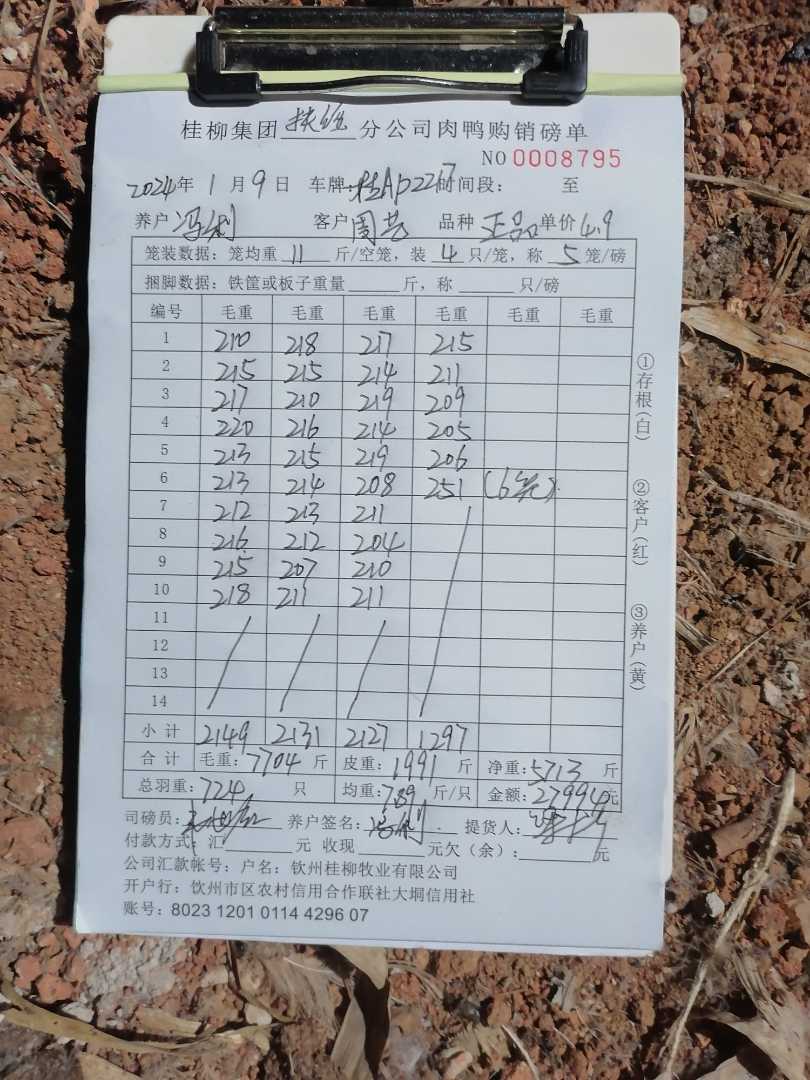 桂柳集团 扶绥 分公司肉鸭购销磅单
NO 0008795
2024年 1月9日 车牌:桂AP2267时间段: 至
养户 冯 客户 周芸 品种 正品 单价 4.9
笼装数据:笼均重 11 斤/空笼,装 4 只/笼,称 5 笼/磅
捆脚数据:铁筐或板子重量 斤,称 只/磅
编号 毛重 毛重 毛重 毛重 毛重 毛重
1 210 218 217 215
2 215 215 214 211
3 217 210 219 209
4 220 216 214 205
5 213 215 219 206
6 213 214 208 251 (6笼)
7 212 213 211
8 216 212 204
9 215 207 210
10 218 211 211
11
12
13
14
小计 2149 2131 2127 1297
合计 毛重:7704斤 皮重:1991斤 净重:5713斤
总羽重:724只 均重:789斤/只 金额:27994元
司磅员: 养户签名:冯 提货人:
付款方式:汇 元 收现 元欠(余): 元
公司汇款帐号:户名:钦州桂柳牧业有限公司
开户行:钦州市区农村信用合作联社大垌信用社
账号:8023 1201 0114 4296 07
①存根(白)
②客户(红)
③养户(黄)